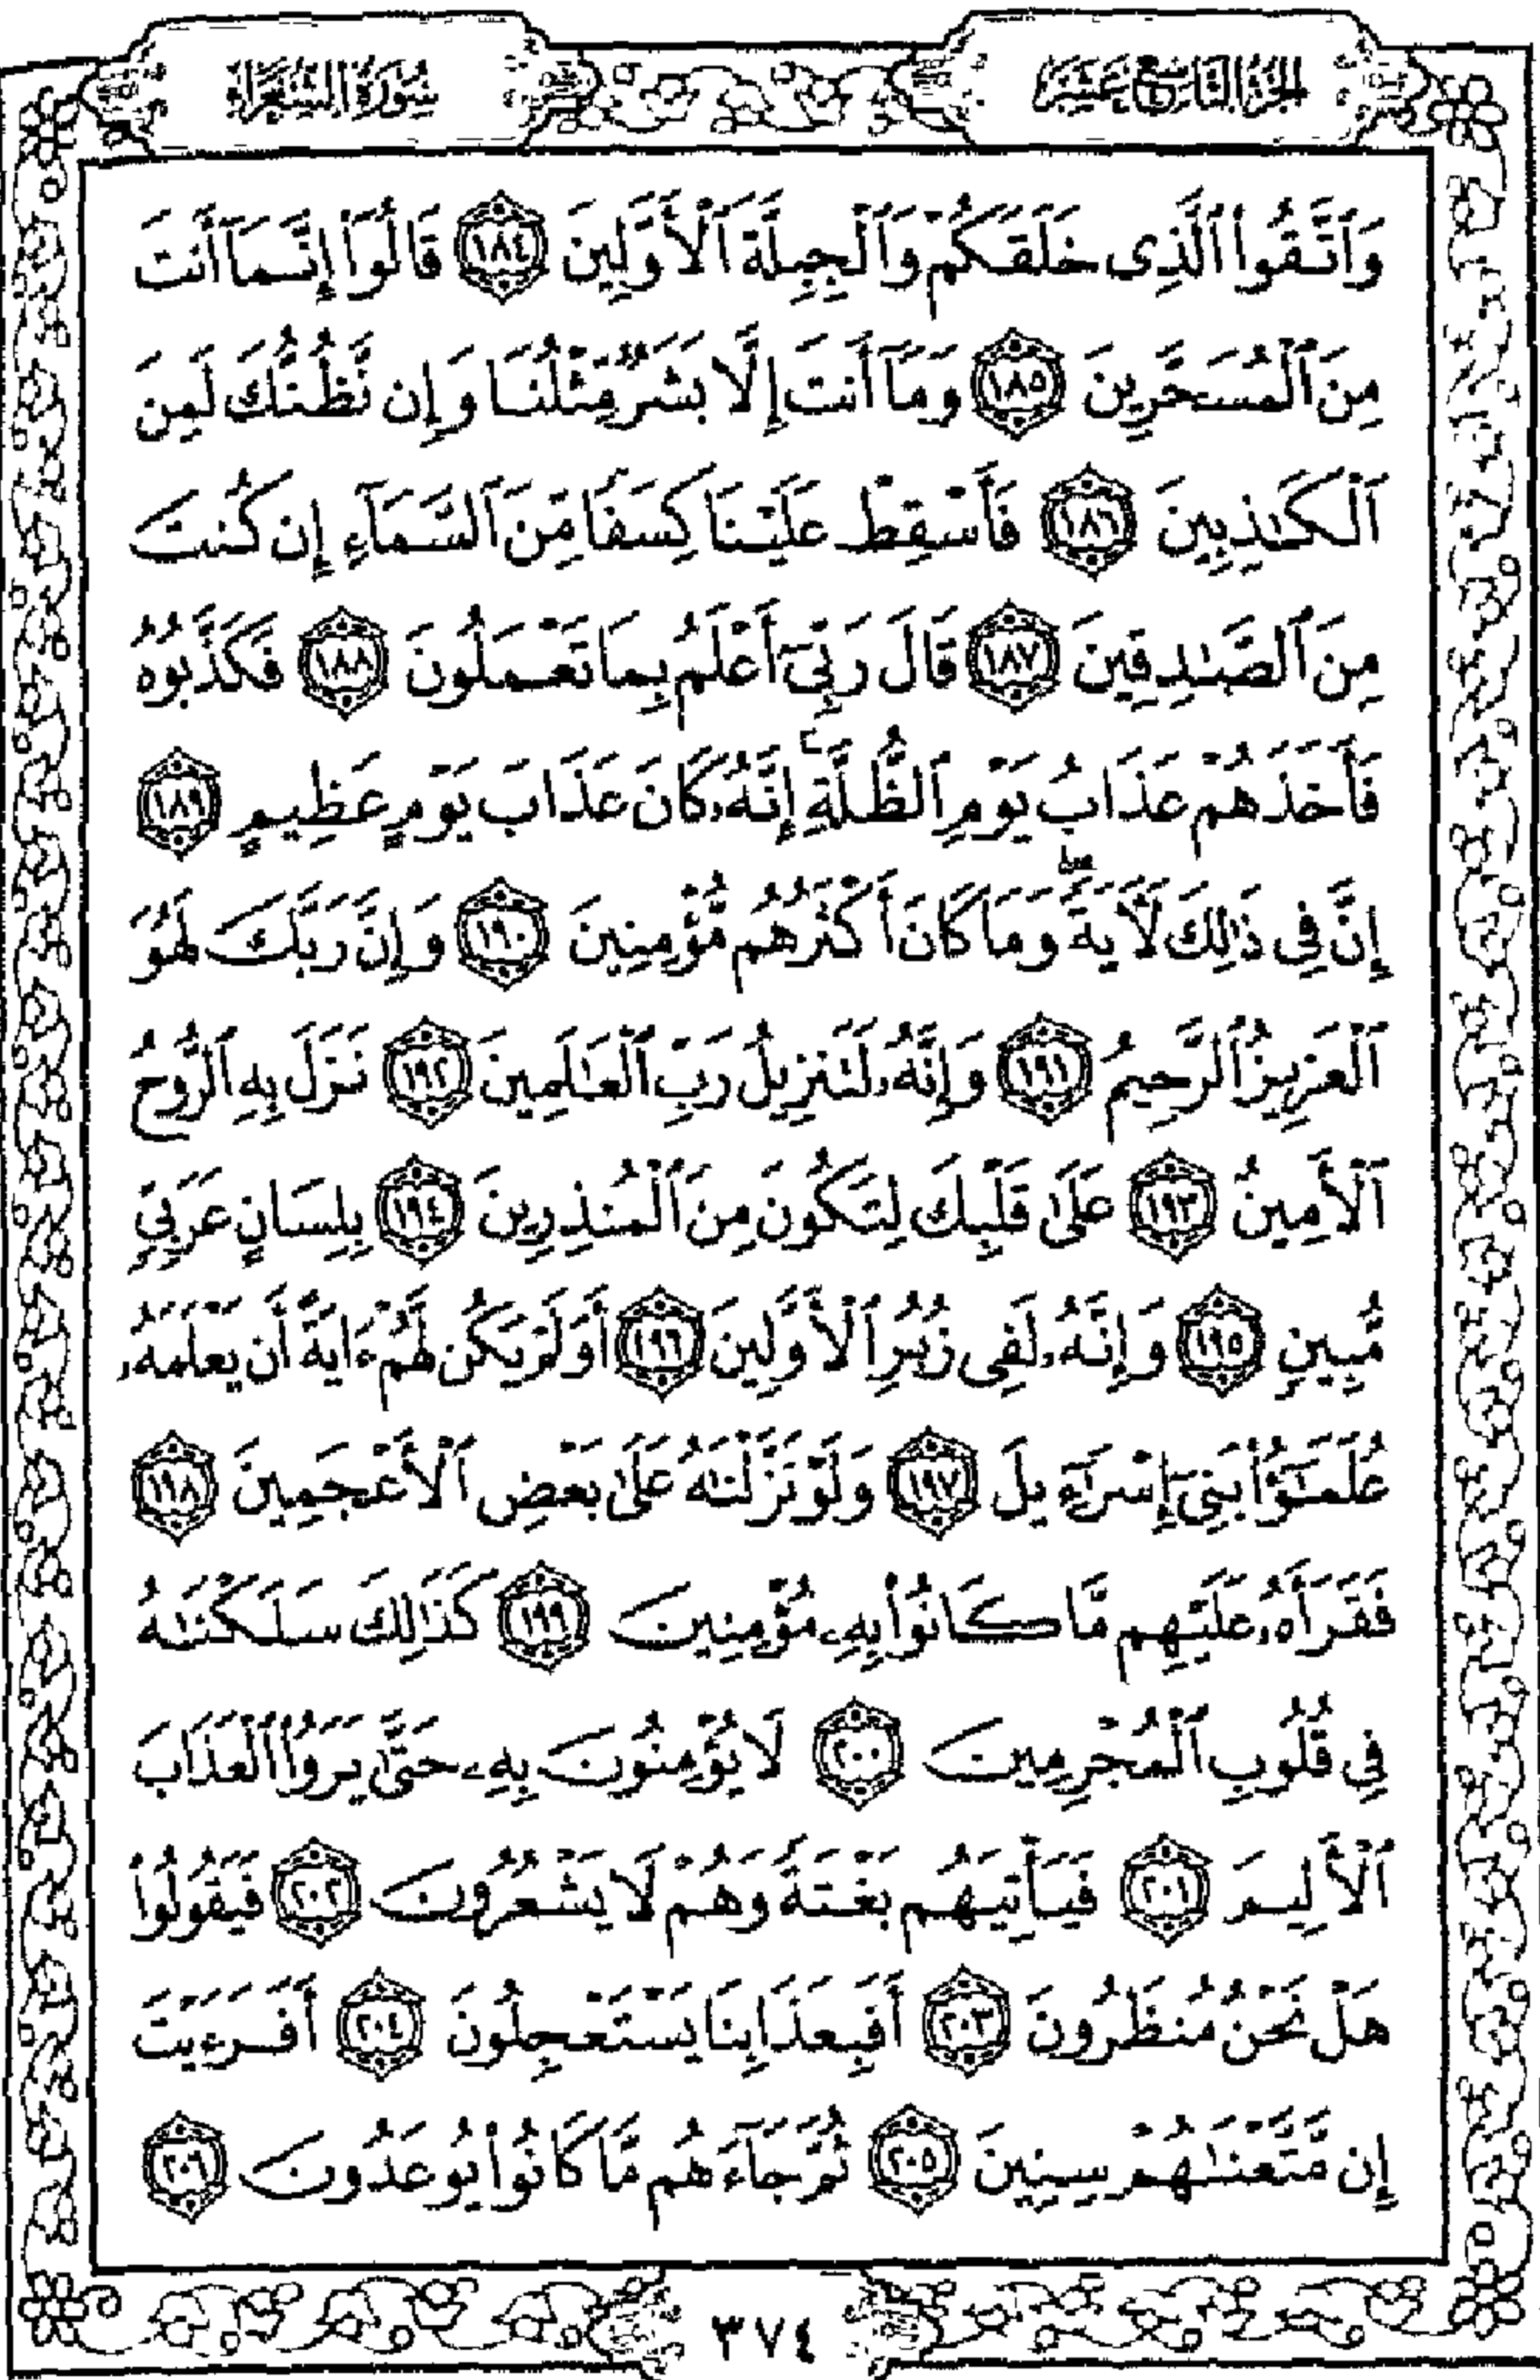 الجزء التاسع عشر سورة الشعراء
وَٱتَّقُوا۟ ٱلَّذِى خَلَقَكُمْ وَٱلْجِبِلَّةَ ٱلْأَوَّلِينَ ١٨٤ قَالُوٓا۟ إِنَّمَآ أَنتَ
مِنَ ٱلْمُسَحَّرِينَ ١٨٥ وَمَآ أَنتَ إِلَّا بَشَرٌ مِّثْلُنَا وَإِن نَّظُنُّكَ لَمِنَ
ٱلْكَـٰذِبِينَ ١٨٦ فَأَسْقِطْ عَلَيْنَا كِسَفًا مِّنَ ٱلسَّمَآءِ إِن كُنتَ
مِنَ ٱلصَّـٰدِقِينَ ١٨٧ قَالَ رَبِّىٓ أَعْلَمُ بِمَا تَعْمَلُونَ ١٨٨ فَكَذَّبُوهُ
فَأَخَذَهُمْ عَذَابُ يَوْمِ ٱلظُّلَّةِ إِنَّهُۥ كَانَ عَذَابَ يَوْمٍ عَظِيمٍ ١٨٩
إِنَّ فِى ذَٰلِكَ لَـَٔايَةً ۖ وَمَا كَانَ أَكْثَرُهُم مُّؤْمِنِينَ ١٩٠ وَإِنَّ رَبَّكَ لَهُوَ
ٱلْعَزِيزُ ٱلرَّحِيمُ ١٩١ وَإِنَّهُۥ لَتَنزِيلُ رَبِّ ٱلْعَـٰلَمِينَ ١٩٢ نَزَلَ بِهِ ٱلرُّوحُ
ٱلْأَمِينُ ١٩٣ عَلَىٰ قَلْبِكَ لِتَكُونَ مِنَ ٱلْمُنذِرِينَ ١٩٤ بِلِسَانٍ عَرَبِىٍّ
مُّبِينٍ ١٩٥ وَإِنَّهُۥ لَفِى زُبُرِ ٱلْأَوَّلِينَ ١٩٦ أَوَلَمْ يَكُن لَّهُمْ ءَايَةً أَن يَعْلَمَهُۥ
عُلَمَـٰٓؤُا۟ بَنِىٓ إِسْرَٰٓءِيلَ ١٩٧ وَلَوْ نَزَّلْنَـٰهُ عَلَىٰ بَعْضِ ٱلْأَعْجَمِينَ ١٩٨
فَقَرَأَهُۥ عَلَيْهِم مَّا كَانُوا۟ بِهِۦ مُؤْمِنِينَ ١٩٩ كَذَٰلِكَ سَلَكْنَـٰهُ
فِى قُلُوبِ ٱلْمُجْرِمِينَ ٢٠٠ لَا يُؤْمِنُونَ بِهِۦ حَتَّىٰ يَرَوُا۟ ٱلْعَذَابَ
ٱلْأَلِيمَ ٢٠١ فَيَأْتِيَهُم بَغْتَةً وَهُمْ لَا يَشْعُرُونَ ٢٠٢ فَيَقُولُوا۟
هَلْ نَحْنُ مُنظَرُونَ ٢٠٣ أَفَبِعَذَابِنَا يَسْتَعْجِلُونَ ٢٠٤ أَفَرَءَيْتَ
إِن مَّتَّعْنَـٰهُمْ سِنِينَ ٢٠٥ ثُمَّ جَآءَهُم مَّا كَانُوا۟ يُوعَدُونَ ٢٠٦
٣٧٤